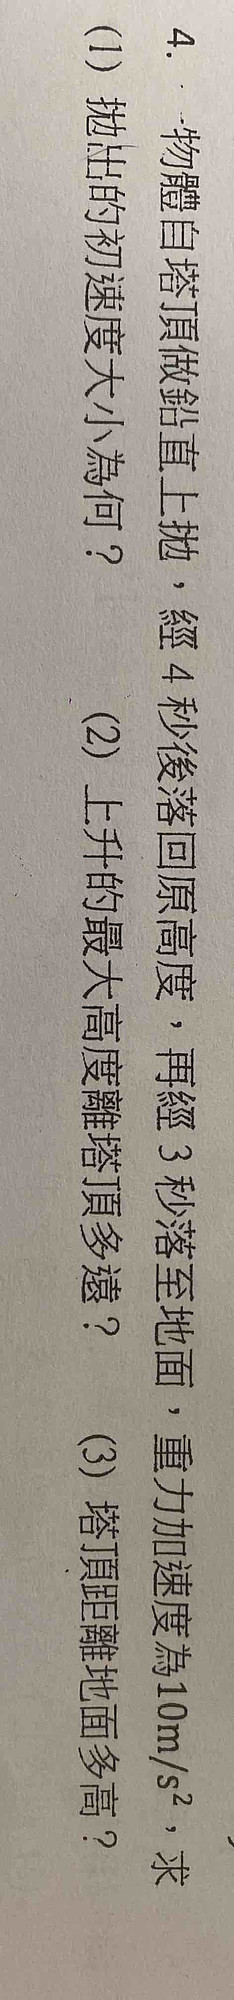 4. 一物體自塔頂做鉛直上拋，經 4 秒後落回原高度，再經 3 秒落至地面，重力加速度為10m/s²，求
(1) 拋出的初速度大小為何？ (2) 上升的最大高度離塔頂多遠？ (3) 塔頂距離地面多高？